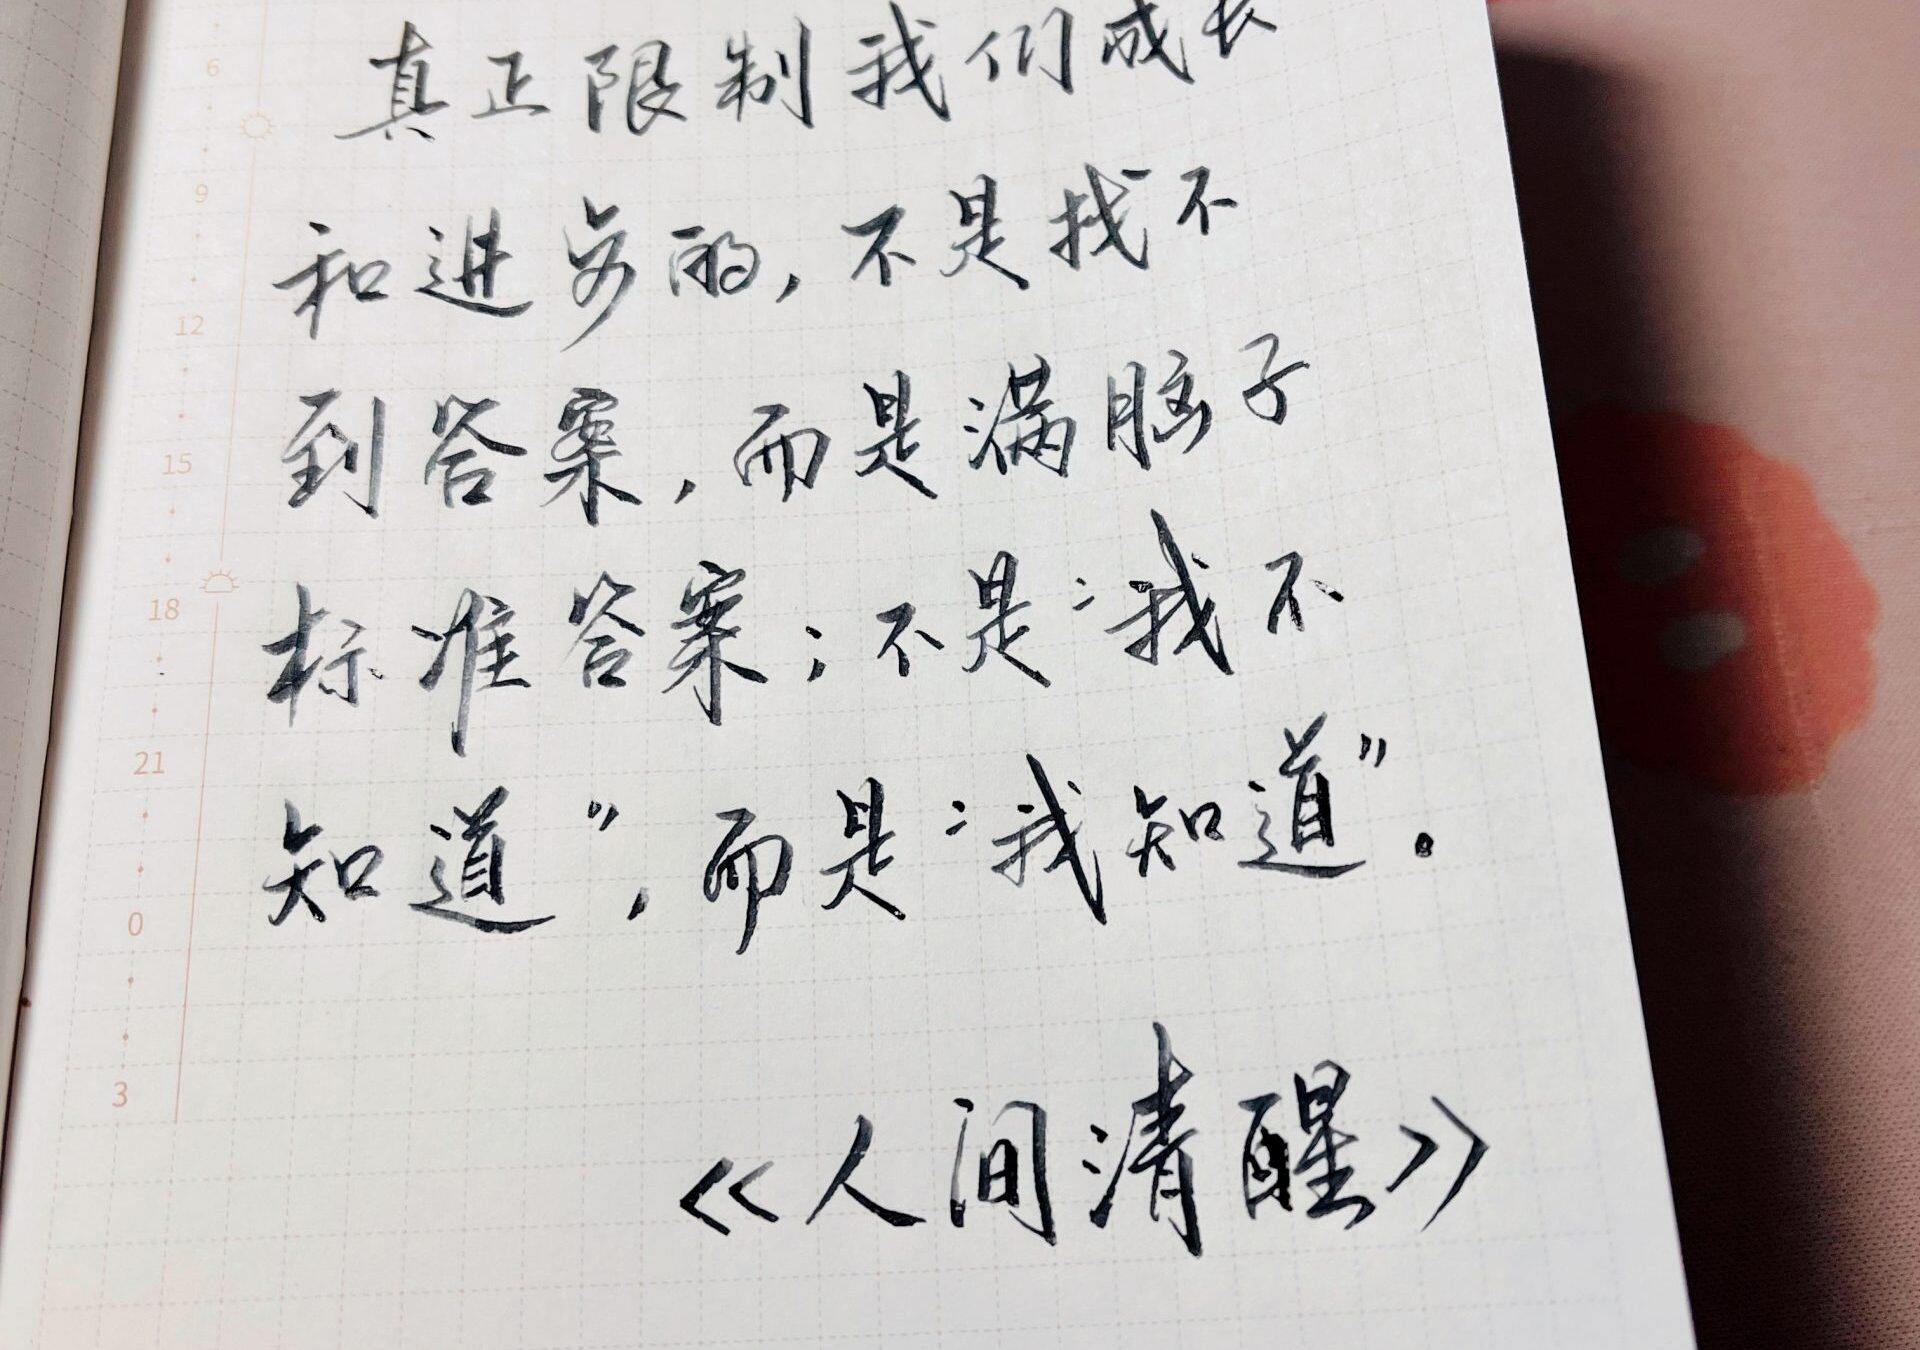 真正限制我们成长
和进步的,不是找不
到答案,而是满脑子
标准答案;不是“我不
知道”,而是“我知道”.
《人间清醒》
6
9
12
15
18
21
0
3